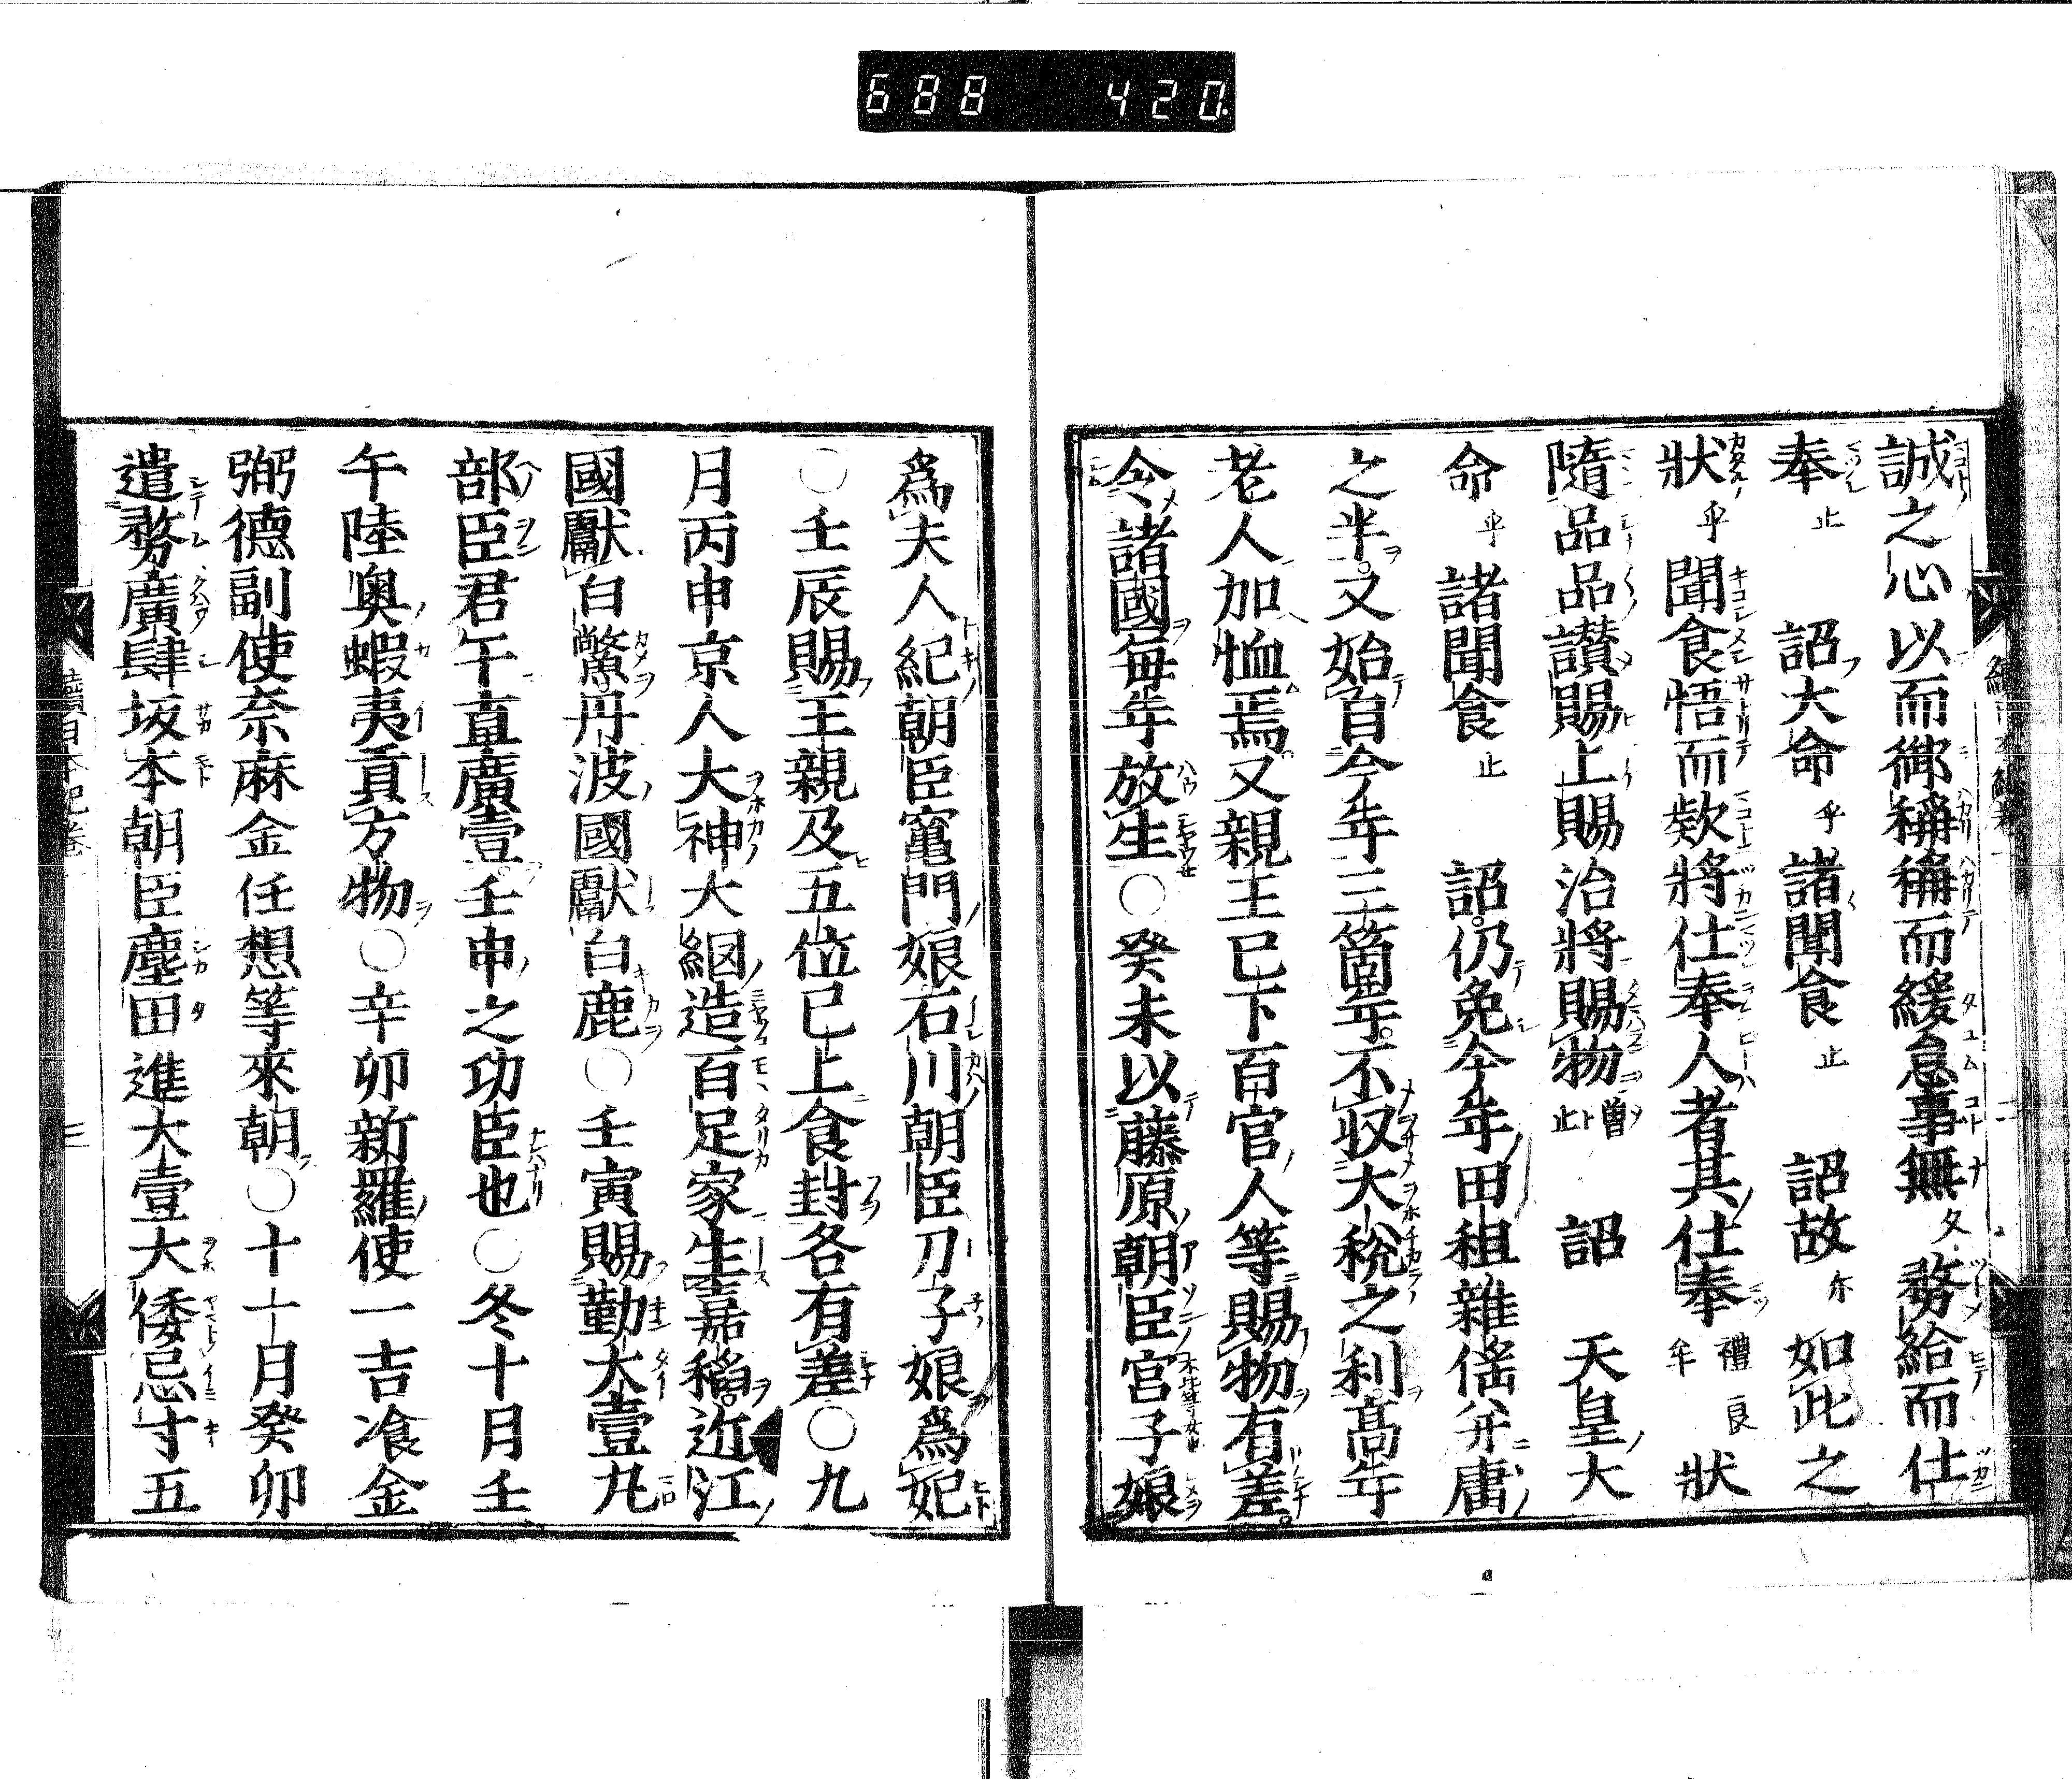 688 420
誠之心以而御稱稱而緩怠事無久務給而仕
奉止 詔大命乎諸聞食止 詔故尓如此之
狀乎聞食悟而款將仕奉人者其仕奉禮良牟狀
隨品品讃賜上賜治將賜物曾止 詔 天皇大
命乎諸聞食止 詔仍免今年田租雜徭幷庸
之半又始自今年三箇年不収大税之利高年
老人加恤焉又親王已下百官人等賜物有差
令諸國毎年放生○癸未以藤原朝臣宮子娘
爲夫人紀朝臣竃門娘石川朝臣刀子娘爲妃
○壬辰賜王親及五位已上食封各有差○九
月丙申京人大神大網造百足家生嘉稲近江
國獻白鱉丹波國獻白鹿○壬寅賜勤大壹丸
部臣君午直廣壹壬申之功臣也○冬十月壬
午陸奥蝦夷貢方物○辛卯新羅使一吉飡金
弼德副使奈麻金任想等來朝○十一月癸卯
遣務廣肆坂本朝臣塵田進大壹大倭忌寸五